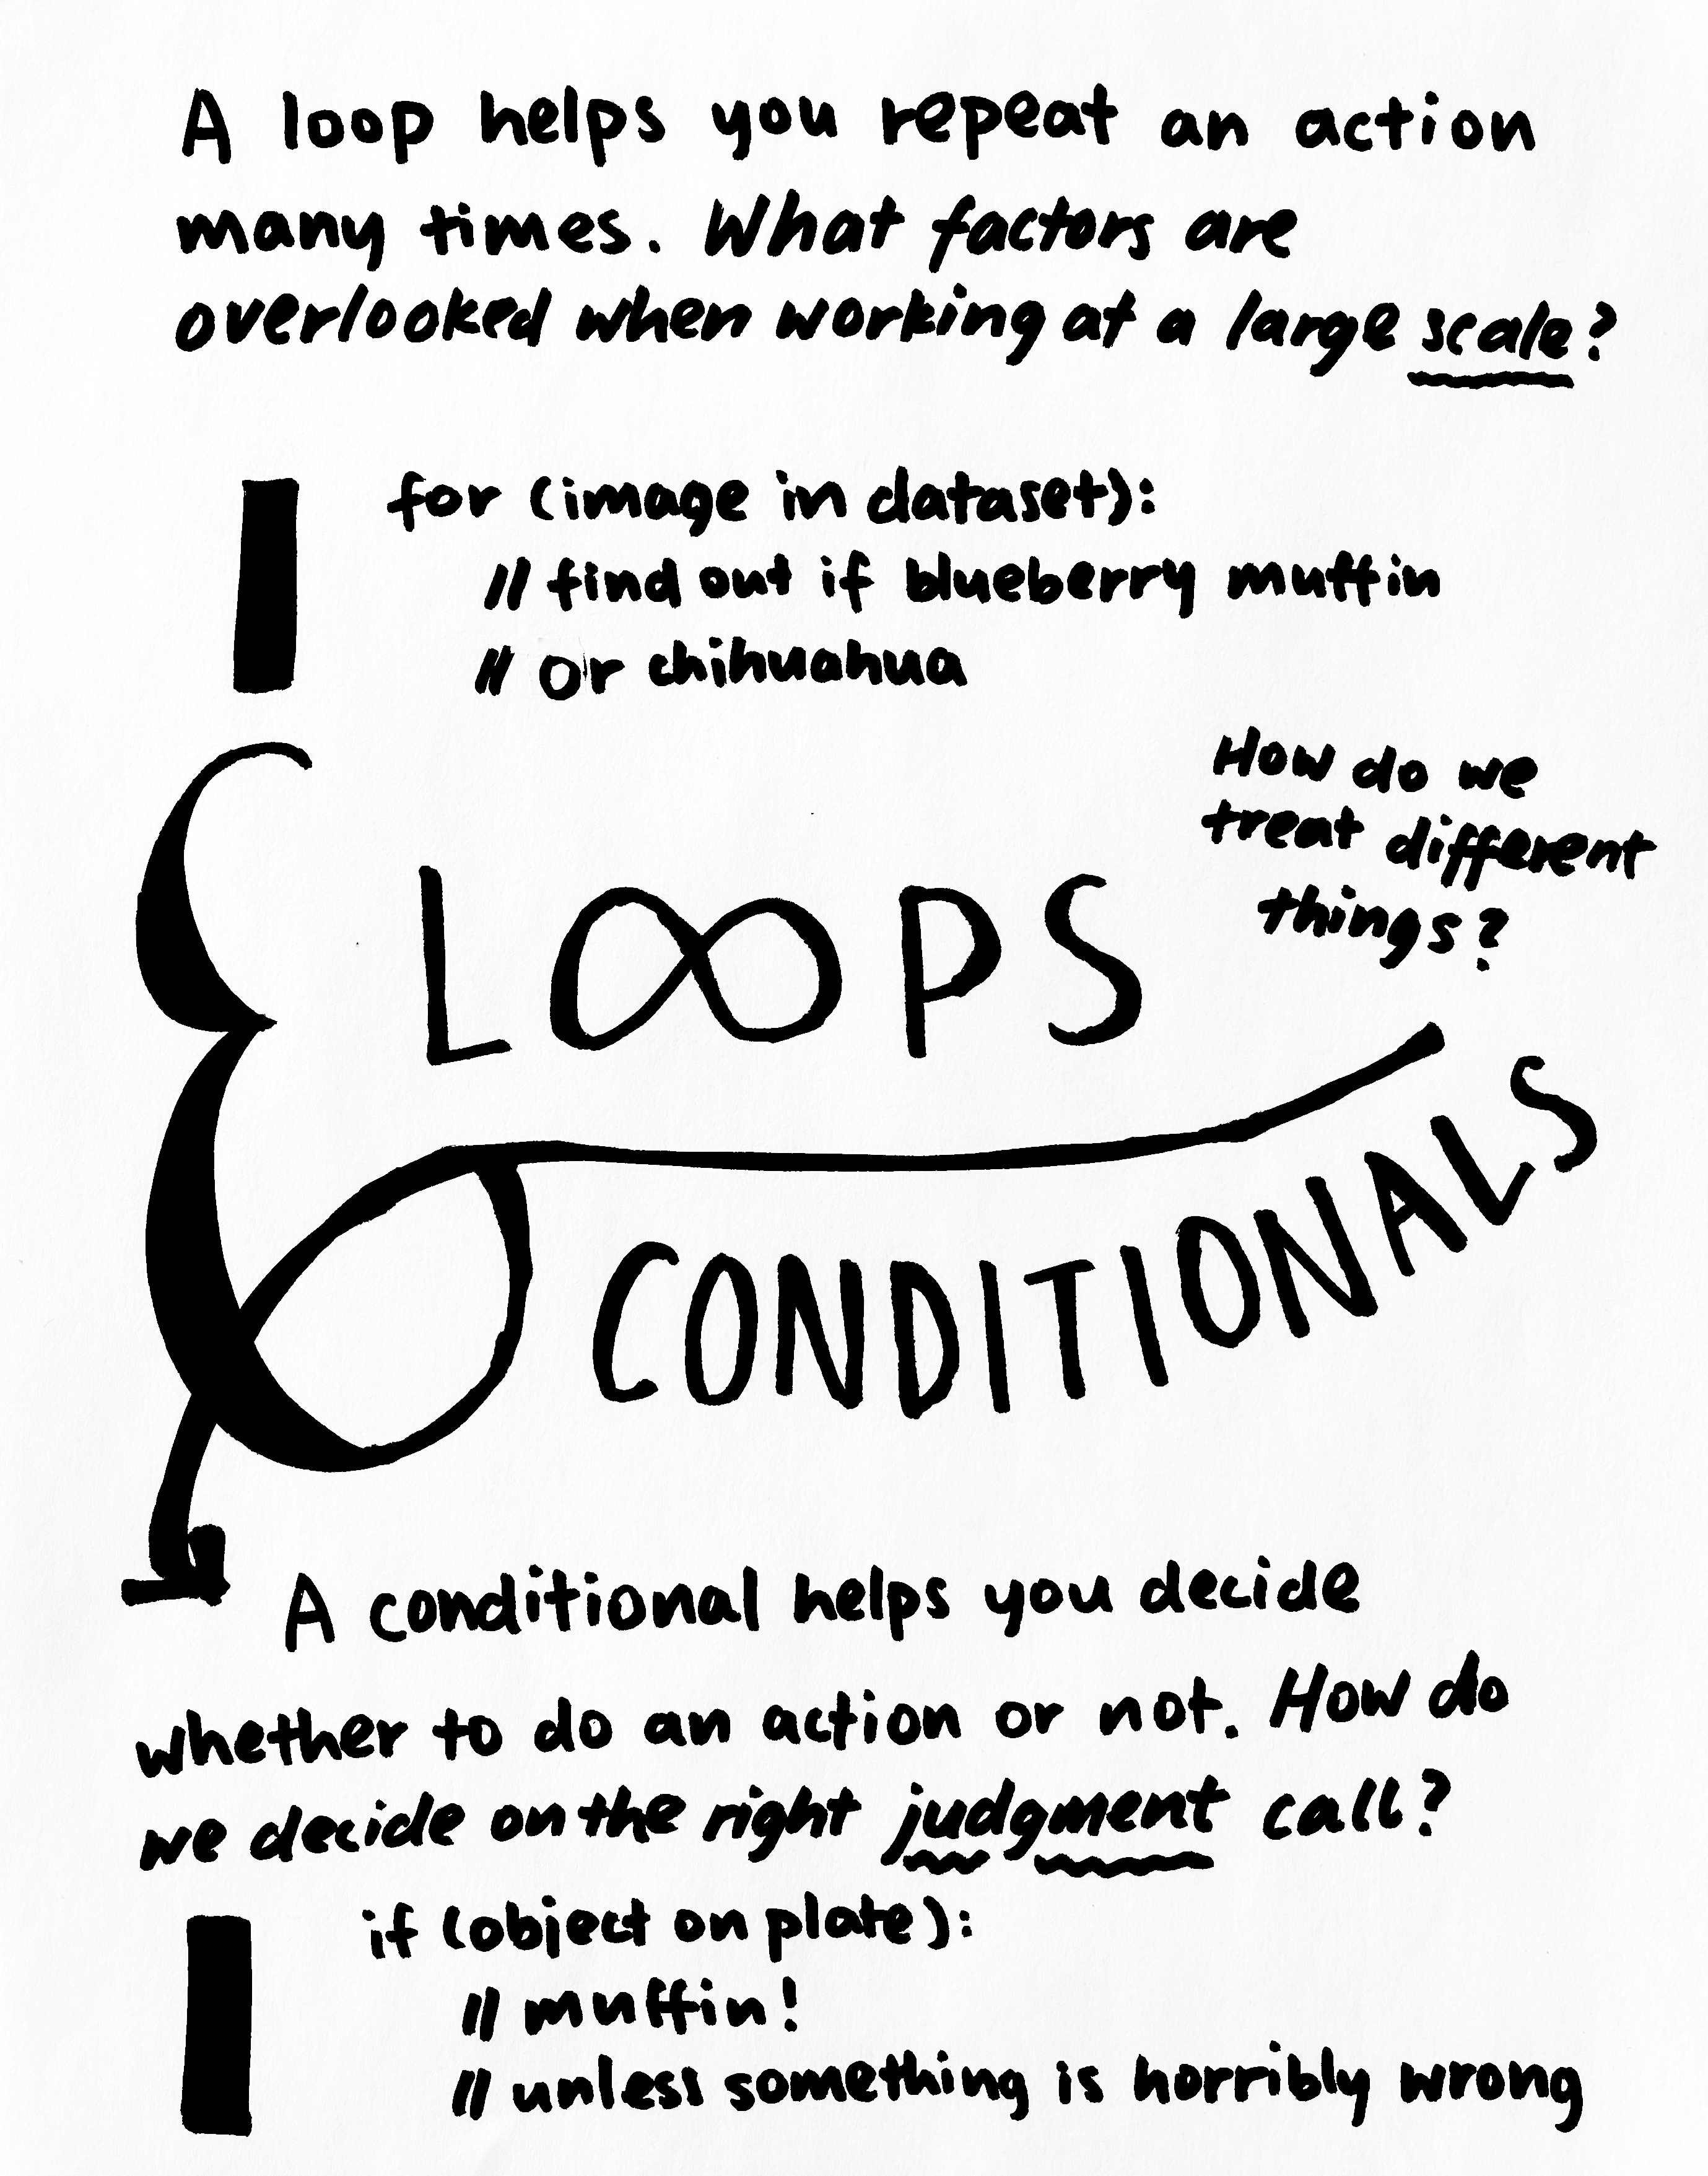 A loop helps you repeat an action
many times. What factors are
overlooked when working at a large scale?
for (image in dataset):
// find out if blueberry muffin
// or chihuahua
How do we
treat different
things?
LOOPS
&
CONDITIONALS
A conditional helps you decide
whether to do an action or not. How do
we decide on the right judgment call?
if (object on plate):
// muffin!
// unless something is horribly wrong